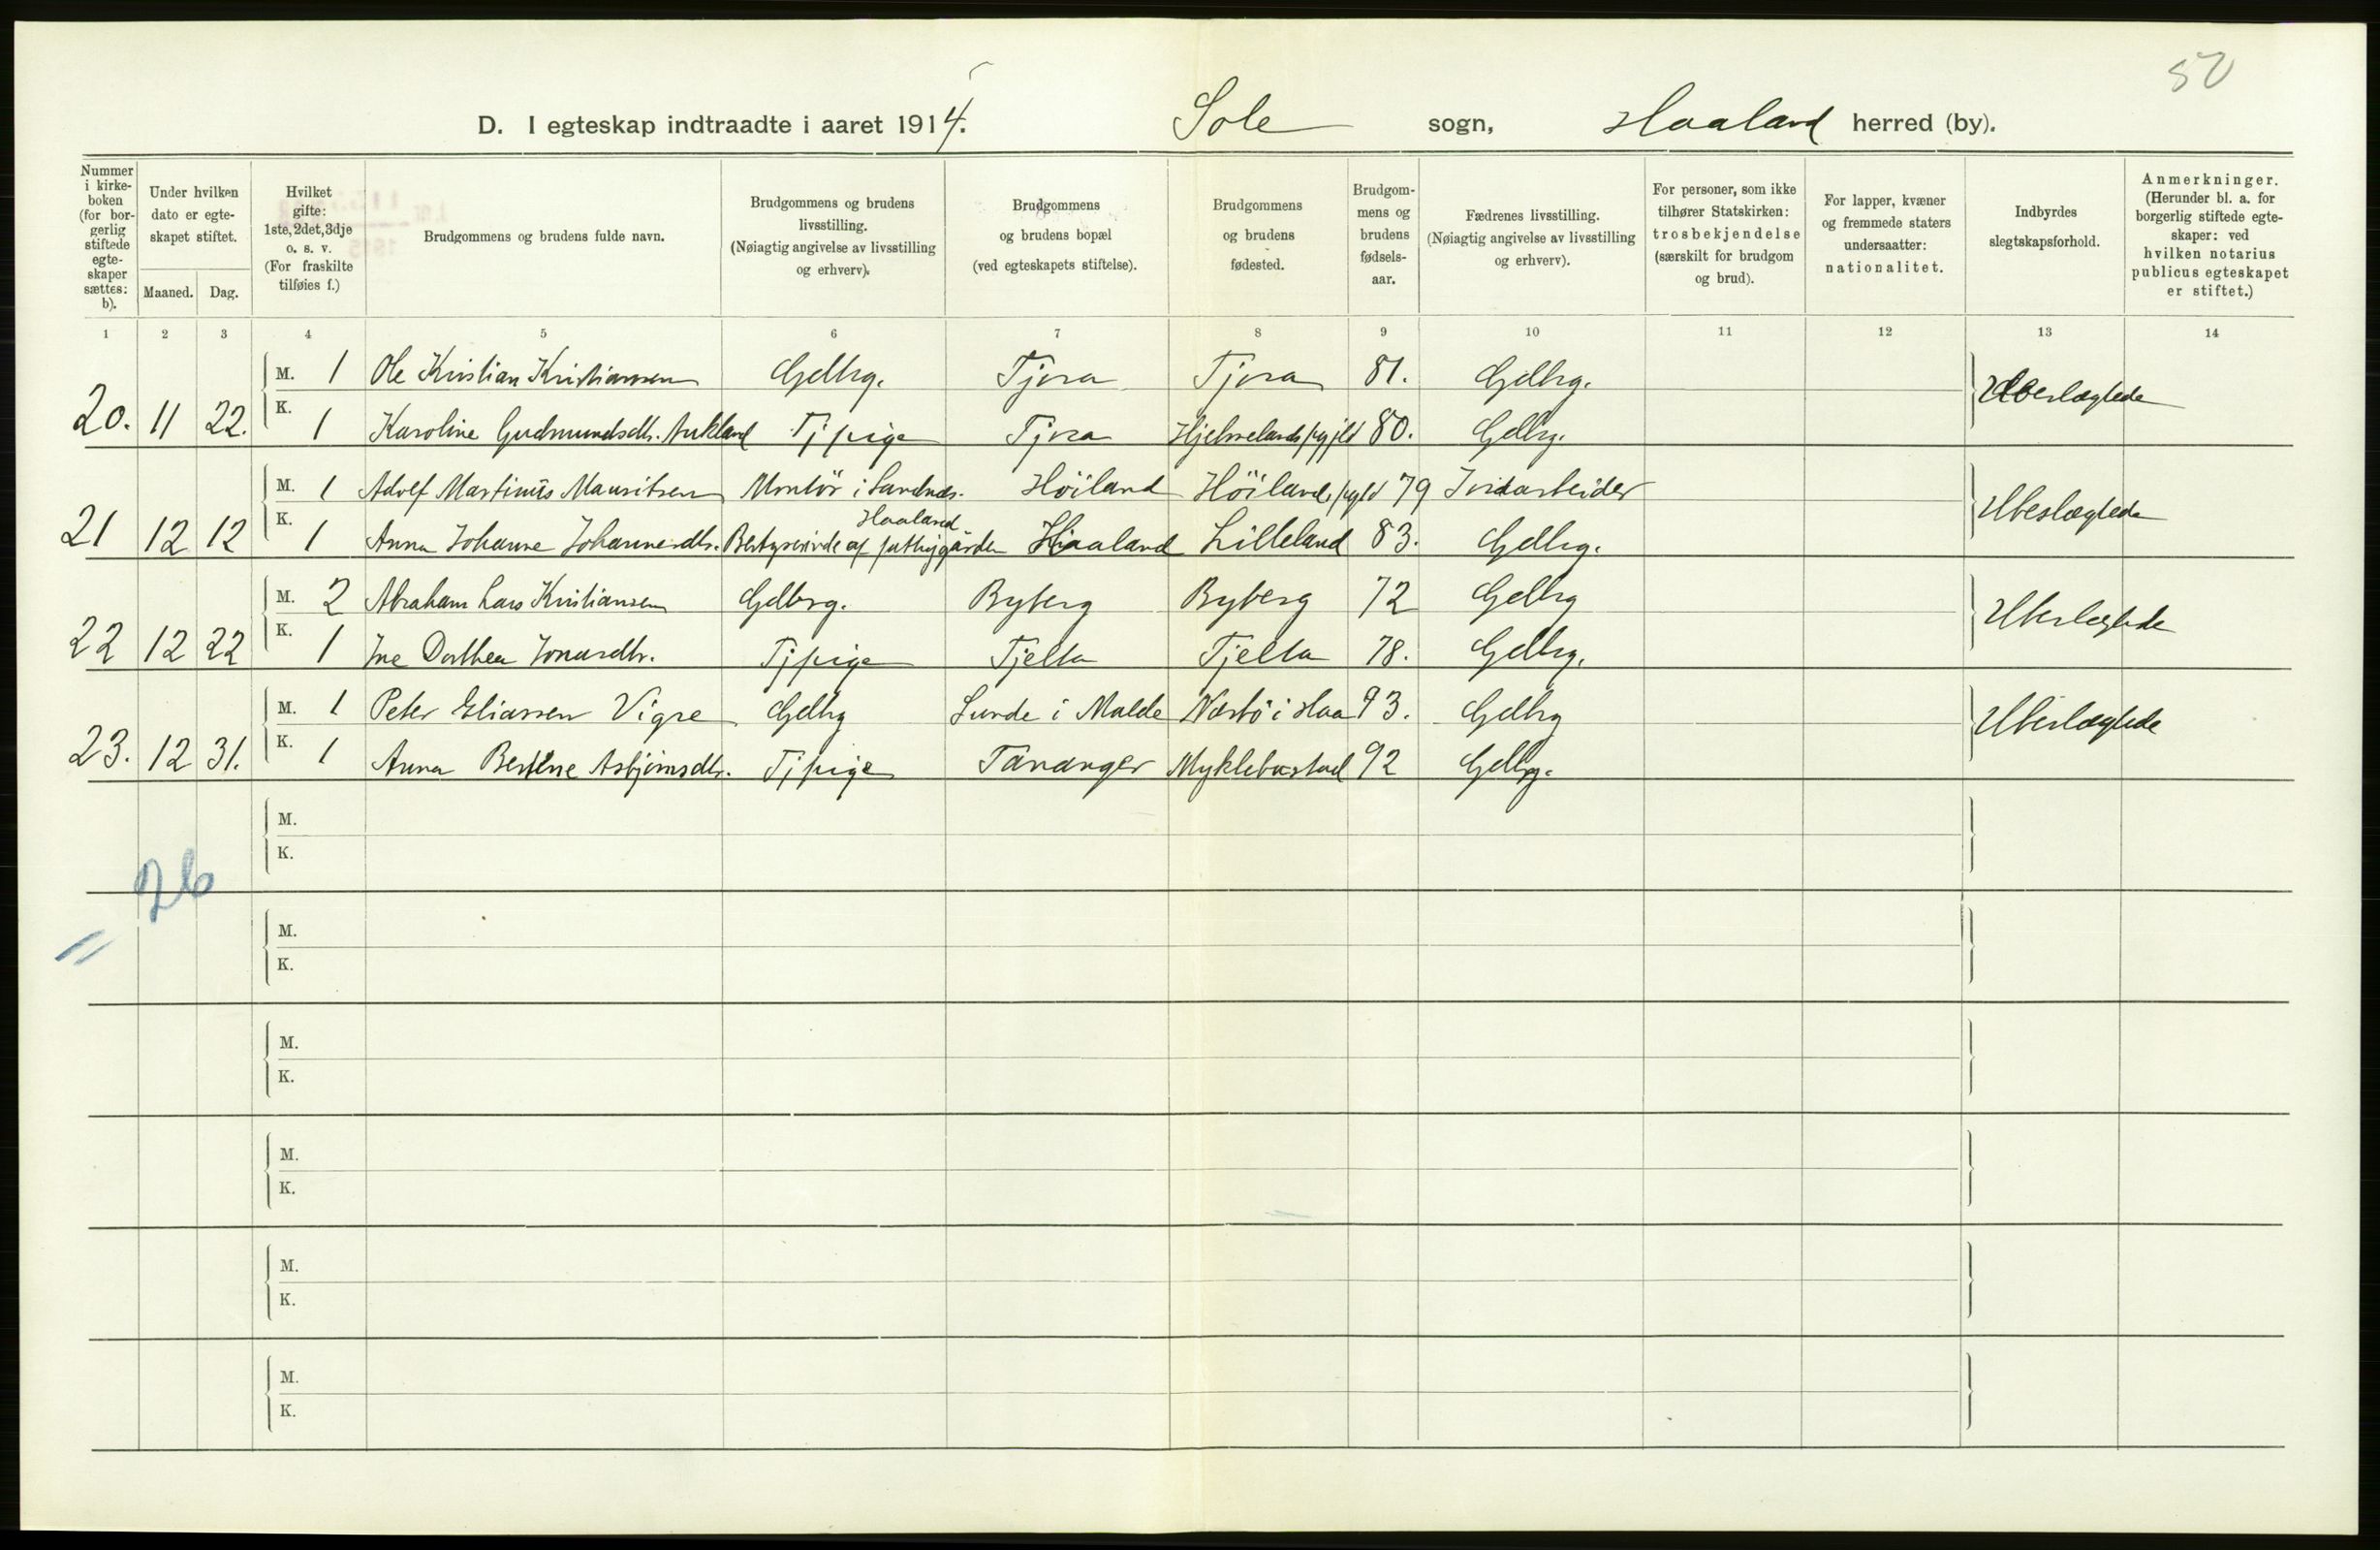 50
D. I egteskap indtraadte i aaret 1914. Sole sogn, Haaland herred (by).
Nummer i kirke-boken (for bor-gerlig stiftede egte-skaper sættes: b).
Under hvilken dato er egte-skapet stiftet.
Maaned. Dag.
Hvilket gifte: 1ste, 2det, 3dje o. s. v. (For fraskilte tilføies f.)
Brudgommens og brudens fulde navn.
Brudgommens og brudens livsstilling. (Nøiagtig angivelse av livsstilling og erhverv).
Brudgommens og brudens bopæl (ved egteskapets stiftelse).
Brudgommens og brudens fødested.
Brudgom-mens og brudens fødsels-aar.
Fædrenes livsstilling. (Nøiagtig angivelse av livsstilling og erhverv).
For personer, som ikke tilhører Statskirken: trosbekjendelse (særskilt for brudgom og brud).
For lapper, kvæner og fremmede staters undersaatter: nationalitet.
Indbyrdes slegtskapsforhold.
Anmerkninger. (Herunder bl. a. for borgerlig stiftede egte-skaper: ved hvilken notarius publicus egteskapet er stiftet.)
1 2 3 4 5 6 7 8 9 10 11 12 13 14
M. 1 Ole Kristian Kristiansen Gdbrg. Tjora Tjora 81. Gdbrg. Ubeslægtede
20. 11 22. K. 1 Karoline Gudmundsdtr. Aukland Tj pige Tjora Hjelmelands pgjld 80. Gdbrg.
M. 1 Adolf Martinus Mauritsen Montör i Sandnes. Höiland Höilands pgld 79 Jordarbeider Ubeslægtede
Haaland
21 12 12 K. 1 Anna Johanne Johannesdtr. Bestyrerinde af fattiggården Haaland Lilleland 83. Gdbrg.
M. 2 Abraham Lars Kristiansen Gdbrg. Byberg Byberg 72 Gdbrg Ubeslægtede
22 12 22 K. 1 Ine Dorthea Jonasdtr. Tj pige Tjelta Tjelta 78. Gdbrg.
M. 1 Peter Eliassen Vigre Gdbrg Sunde i Malde Nærbö i Haa 93. Gdbrg Ubeslægtede
23. 12 31. K. 1 Anna Bertine Asbjörnsdtr. Tj pige Tananger Myklebustad 92 Gdbrg.
M.
K.
26
M.
K.
M.
K.
M.
K.
M.
K.
M.
K.